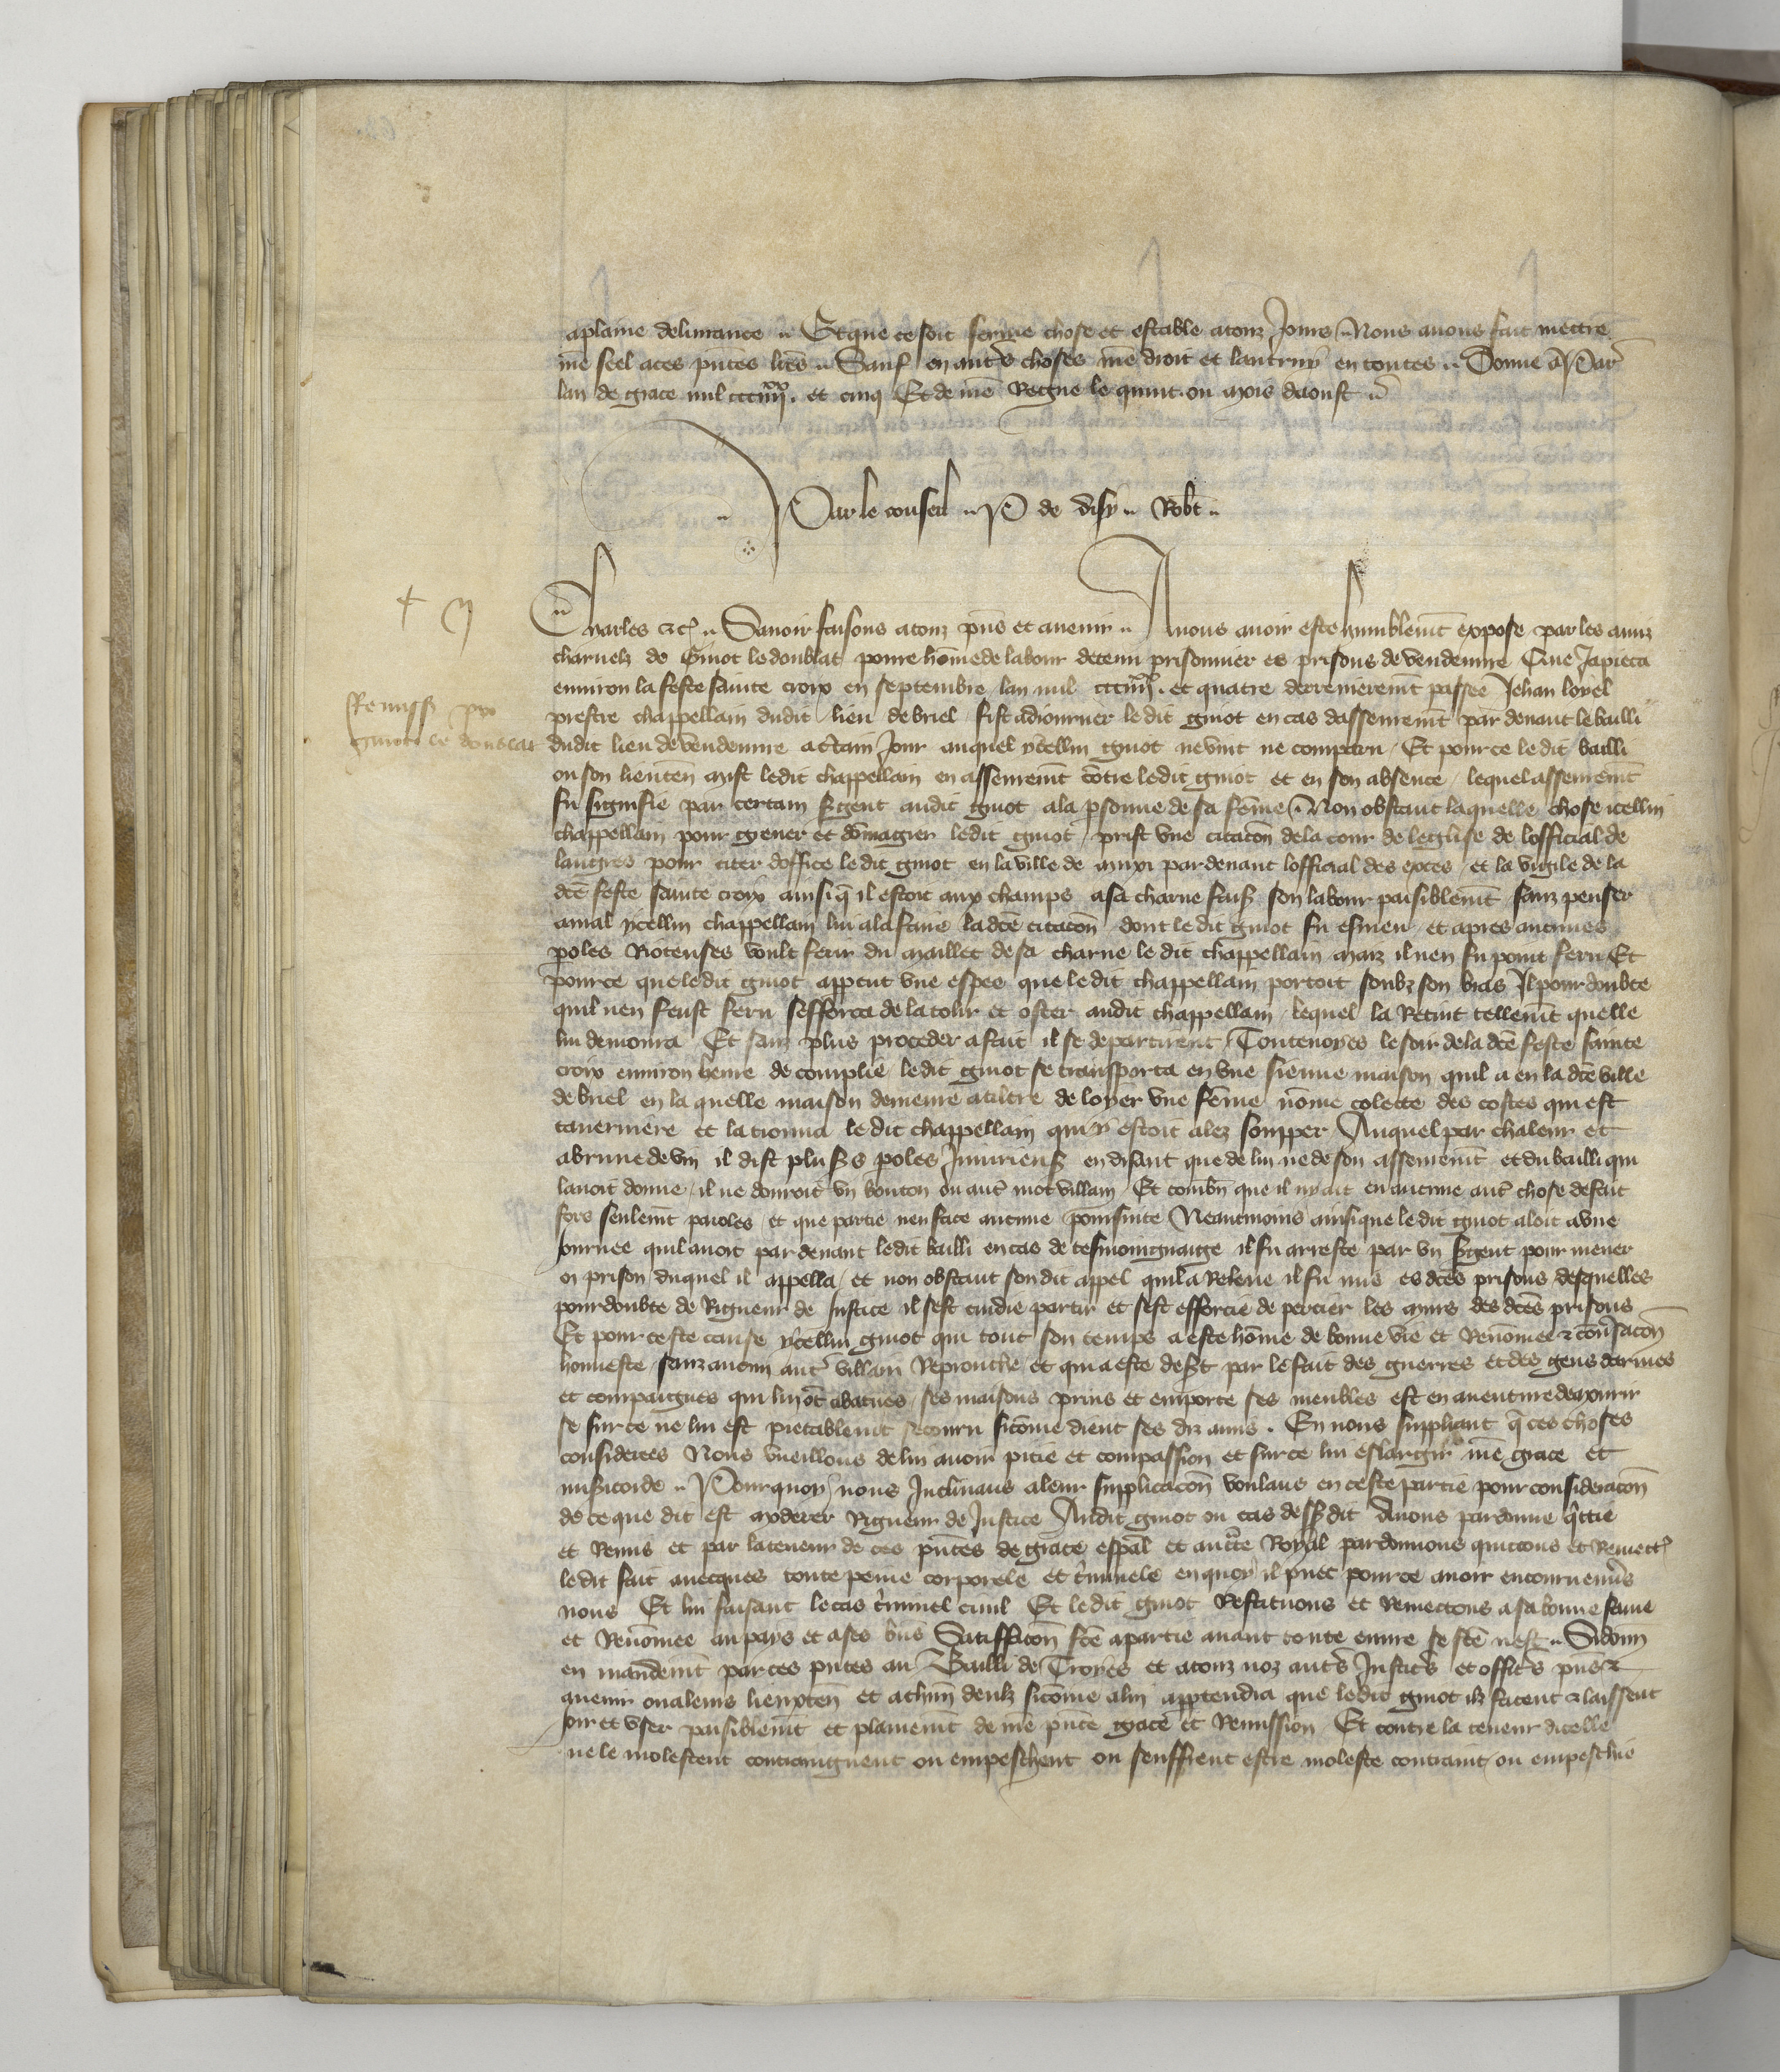 aplaine deliurance Et que ce soit ferme chose et estable atouz Jours Nous auons fait mectre
nr̄e seel aces pñtes lr̄es Sauf en autr̄s choses nr̄e droit et lautruy en toutes Donne a Par̄
lan de grace mil ccciiijxx. et cinq Et de nr̄e Regne le quint ou mois daoust
Par le conseil P de disy Robt̄
Charles &c̄ Sauoir faisons atouz pn̄s et auenir Anous auoir este humblem̄t expose par les amis
charnelz de Guiot le doublat poure hōme de labour detenu prisonnier es prisons de vendeuure Que Japieca
enuiron la feste sainte croix en septembre lan mil ccciiijxx. et quatre derrenierem̄t passee Jehan loyel
prestre chappellain dudit lieu de briel fist adiourner ledit guiot en cas dasseurem̄t par deuant le bailli
Remiss pro
guioto le doublat
dudit lieu de vendeuure a cr̄tain Jour auquel ycellui guiot ne vint ne comparu Et pour ce ledit bailli
ou son lieuten̄ mist ledit chappellain en asseurem̄t cōtre ledit guiot et en son absence lequel asseurem̄t
fu signifie par certain s̄gent audit guiot ala p̄sonne de sa fēme Non obstant laquelle chose icellui
chappellain pour greuer et dōmagier ledit guiot prist vne citacōn de la cour de leglise de lofficial de
langres pour citer doffice ledit guiot en la ville de muxi par deuant lofficial des exces et la vigile de la
dc̄e feste sainte croix ainsi q̄ il estoit aux champs asa charue fais̄ son labour paisiblem̄t sanz penser
amal ycellui chappellain lui ala faire lad̄ce citacōn dont ledit guiot fu esmeu et apres aucunes
p̄oles Rioteuses voult ferir du maillet de sa charue le dit chappellain maiz il nen fu point feru Et
pource que ledit guiot app̄cut vne espee que ledit chappellain portoit soubz son bras Il pour doubte
quil nen feust feru sefforca de la tolir et oster audit chappellain lequel la Retint tellem̄t quelle
lui demoura Et sanz plus proceder afait il se departirent Toutevoyes le soir de la dc̄e feste sainte
croix enuiron heure de complie ledit guiot se transporta en vne sienne maison quil a en la dc̄e ville
de briel en laquelle maison demeure atiltre de loyer vne fēme nōme colecte des costes qui est
tauerniere et la trouua le dit chappellain qui y estoit alez soupper Auquel par chaleur et
abruue de vin il dist plus̄s p̄oles Iniurieus̄ en disant que de lui ne de son asseurem̄t et du bailli qui
lauoit donne il ne donroit vn bouton ou autr̄ mot villain Et combn̄ que il ny ait en aucune autr̄ chose defait
fors seulem̄t paroles et que partie nen face aucune poursuite Neantmoins ainsi que ledit guiot aloit avne
journee quil auoit par deuant ledit bailli en cas de tesmoingnaige il fu arreste par vn s̄gent pour mener
en prison duquel il appella et non obstant son dit appel quil a Releue il fu mis es dc̄es prisons desquelles
pour doubte de Rigueur de Justice il sest cuidie partir et sest efforcie de percier les murs des dc̄es prisons
Et pour ceste cause ycellui guiot qui tout son temps a este hōme de bonne vie et Renōmee & cōu̇sacōn
honneste sanz aucun autr̄ villain Reprouche et qui a este des̄t par le fait des guerres et des gens darmes
et compaignes qui lui ōt abatues ses maisons prins et emporte ses meubles est en auenture de mourir
se sur ce ne lui est pietablem̄t secouru sicōme dient ses diz amis. En nous suppliant q̄ ces choses
considerees Nous vueillons de lui auoir pitie et compassion et sur ce lui eslargir nr̄e grace et
mis̄icorde Pourquoy nous Inclinans aleur supplicacōn voulans en ceste partie pour consideracōn
de ce que dit est moderer Rigueur de Justice Audit guiot ou cas dess̄ dit Auons pardonne q̄ttie
et Remis et par la teneur de ces pn̄tes de grace esp̄al et auctr̄te Royal pardonnons quictons et Remect̄
ledit fait auecques toute peine corporele et cr̄iminele en quoy il puet pource auoir encouru enu̇s
nous Et lui faisant le cas cr̄iminel ciuil Et ledit guiot Restituons et Remectons asa bonne fame
et Renōmee au pays et ases bn̄s Satisffacōn fc̄e apartie auant toute euure se fc̄e nest Sidonn̄
en mandem̄t par ces pn̄tes au Bailli de Troyes et atouz noz autr̄s Justic̄s et offic̄s pn̄s &
auenir ou aleurs lieuxten̄ et achūn deulz sicōme alui app̄tendra que ledit guiot ilz facent & laissent
joir et vser paisiblem̄t et plainem̄t de nr̄e pn̄te grace et Remission Et contre la teneur dicelle
ne le molestent contraingnent ou empeschent ou seuffrent estre moleste contraint ou empeschie